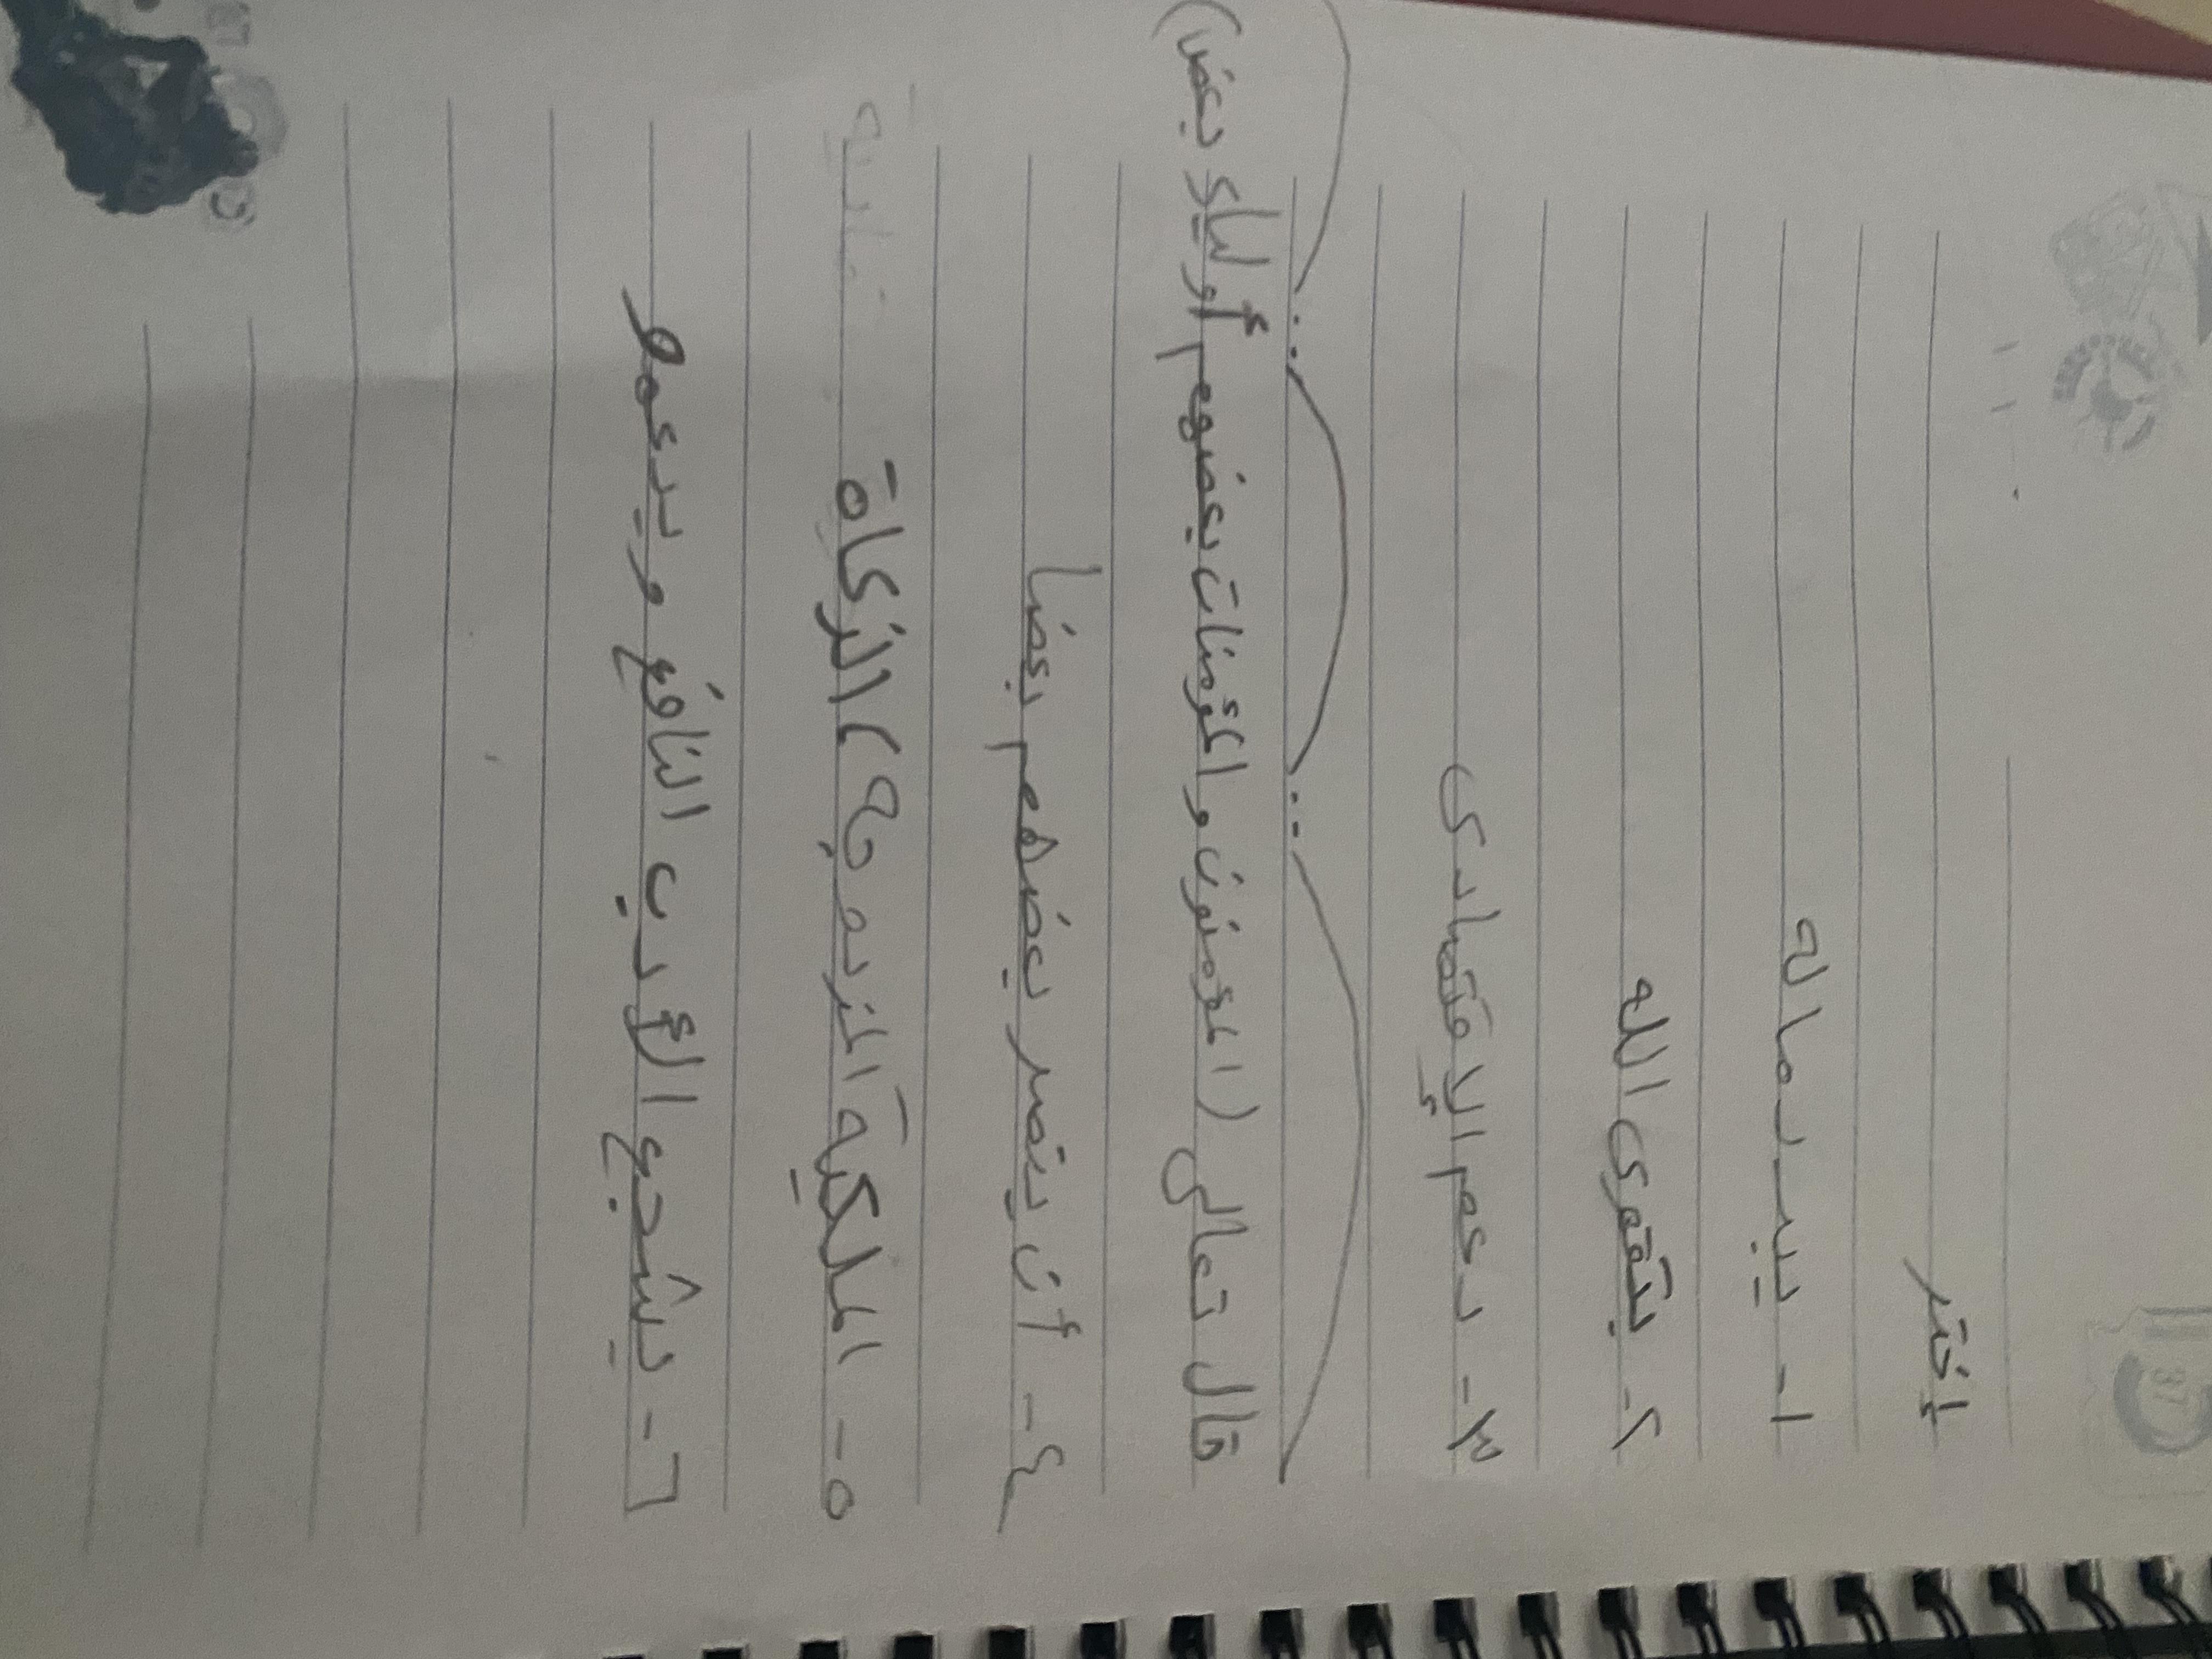 إختر
١- يبدد ماله
٢- بتقوى الله
٣- دعم الإقتصادى
قال تعالى (المؤمنون والمؤمنات بعضهم أولياء بعض)
٤- أن ينصر بعضهم بعضا
٥- الملكية المزدوجة / الزكاة
٦- يشجع الأدب النافع ويدعمه